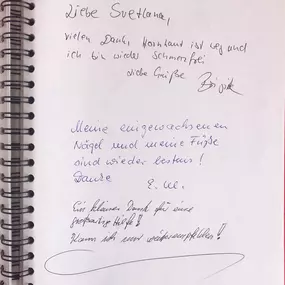 Liebe Svetlana,
vielen Dank, Hornhaut ist weg und
ich bin wieder schmerzfrei
Liebe Grüße Brigitte
Meine eingewachsenen
Nägel und meine Füße
sind wieder bestens!
Danke
E. M.
Ein kleiner Dank für eine
großartige Hilfe!
Kann ich nur weiterempfehlen!!